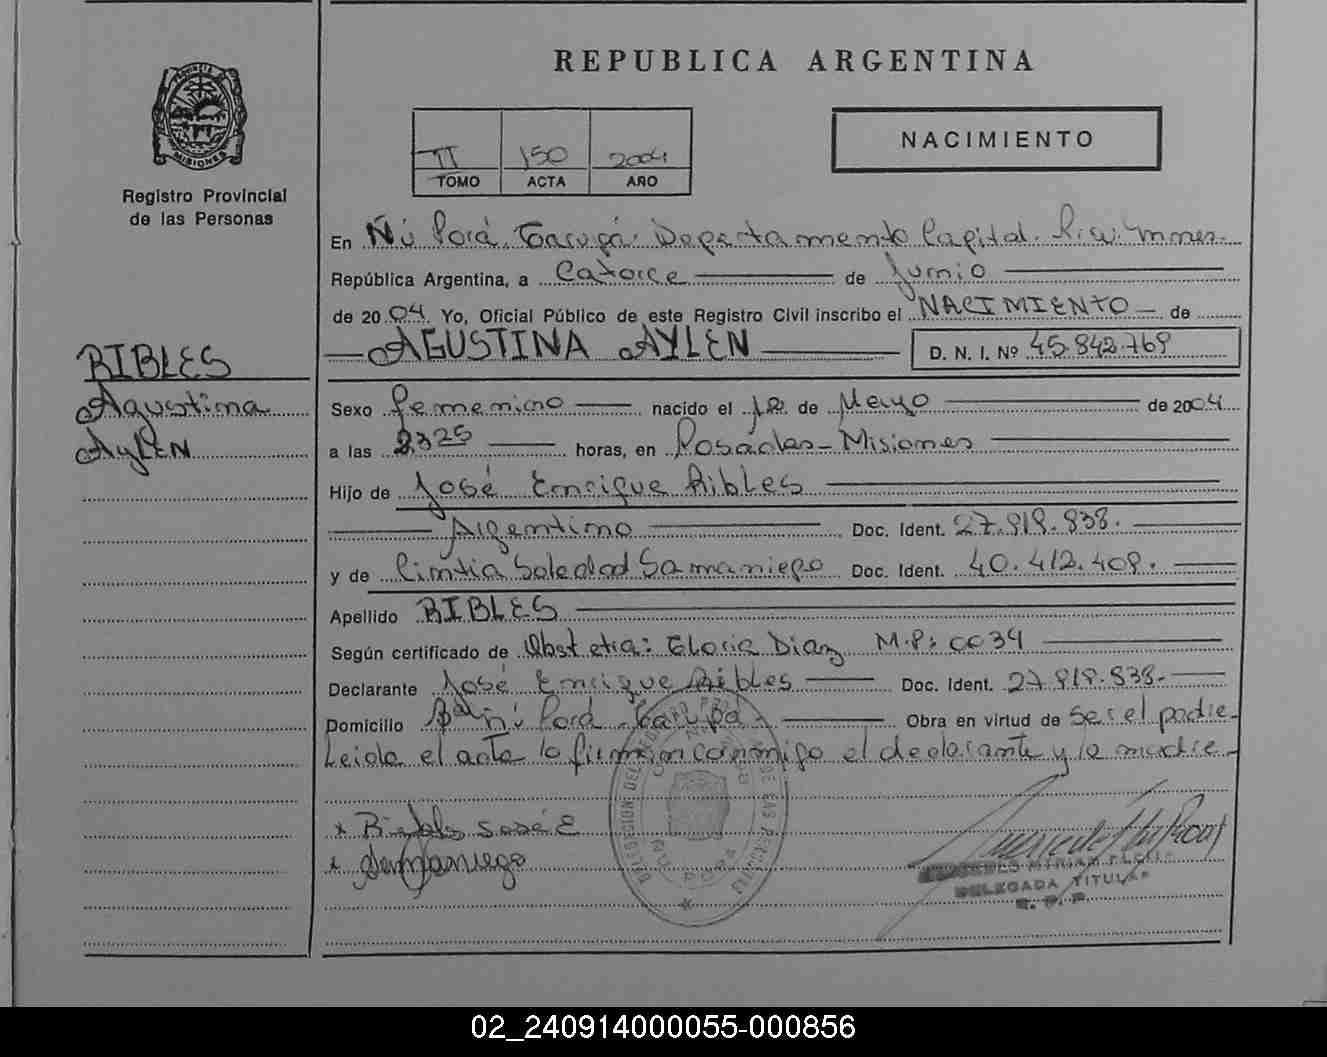 REPUBLICA ARGENTINA
PROVINCIA DE
MISIONES
Registro Provincial
de las Personas
II 150 2004
TOMO ACTA AÑO
NACIMIENTO
En Ñú Porá, Garupá. Departamento Capital. Misiones
República Argentina, a Catorce de Junio
de 2004. Yo, Oficial Público de este Registro Civil inscribo el NACIMIENTO de
AGUSTINA AYLEN D. N. I. Nº 45.842.769
RIBLES
Agustina
AyLEN
Sexo femenino nacido el 12 de Mayo de 2004
a las 2325 horas, en Posadas-Misiones
Hijo de José Enrique Ribles
Argentino Doc. Ident. 27.919.838.
y de Cintia Soledad Samaniego Doc. Ident. 40.412.409.
Apellido RIBLES
Según certificado de Obstetra: Gloria Diaz M.P: 0034
Declarante José Enrique Ribles Doc. Ident. 27.919.838.
Domicilio Bº Ñú Porá - Garupá - Obra en virtud de ser el padre
Leida el acta lo firman conmigo el declarante y la madre
x José E
x Samaniego
MYRIAM
DELEGADA TITULAR
R. P. P
02_240914000055-000856